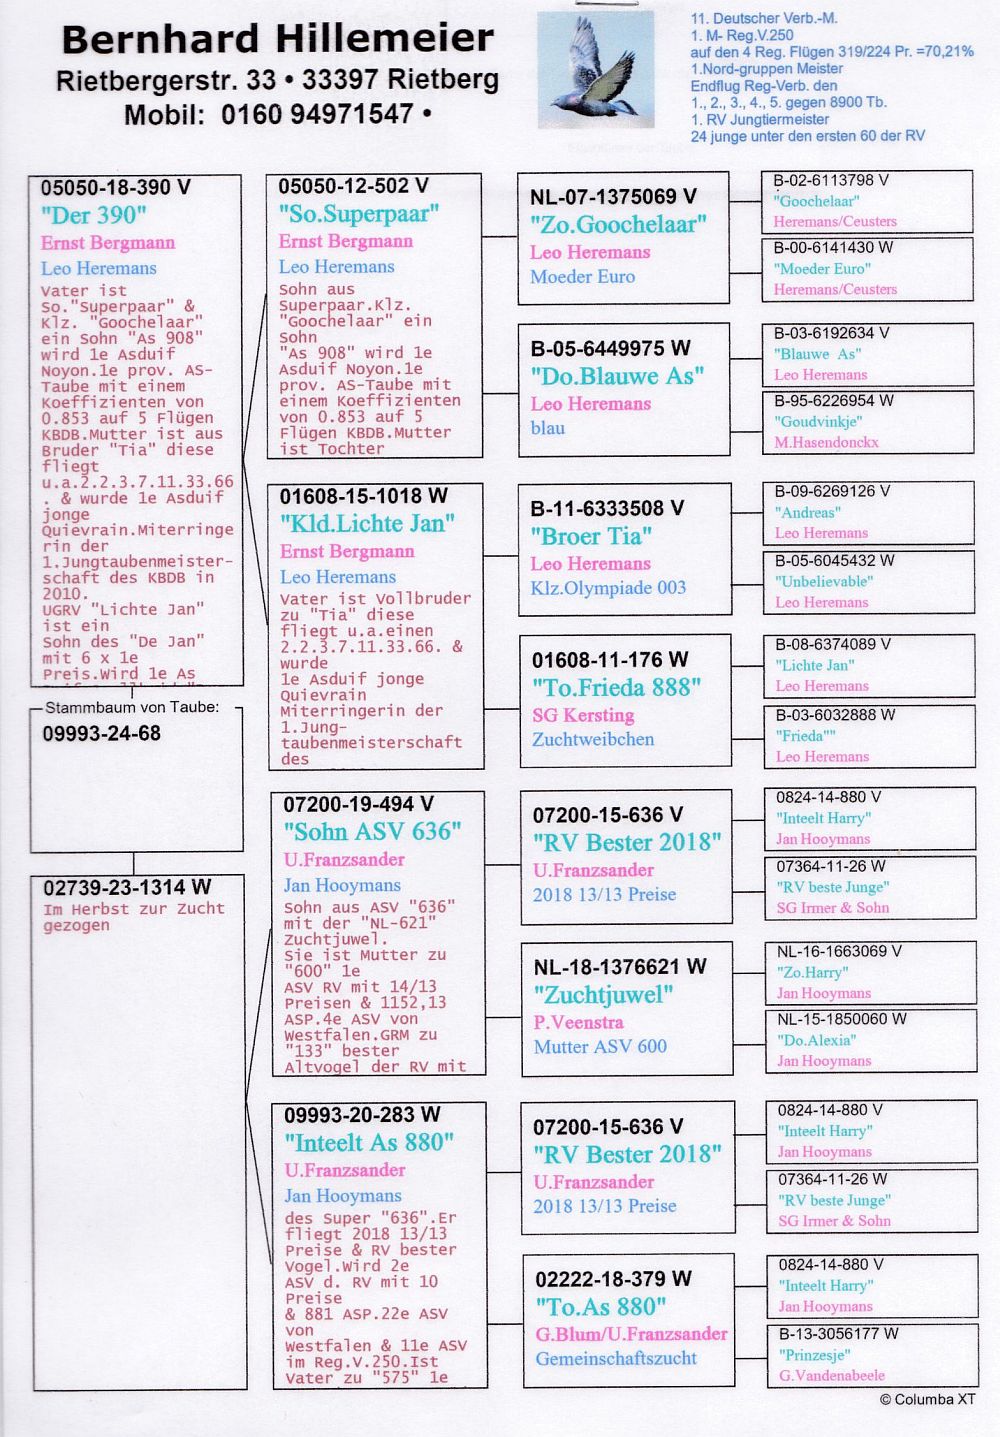 Bernhard Hillemeier
Rietbergerstr. 33 • 33397 Rietberg
Mobil: 0160 94971547 •
11. Deutscher Verb.-M.
1. M- Reg.V.250
auf den 4 Reg. Flügen 319/224 Pr. =70,21%
1.Nord-gruppen Meister
Endflug Reg-Verb. den
1., 2., 3., 4., 5. gegen 8900 Tb.
1. RV Jungtiermeister
24 junge unter den ersten 60 der RV
05050-18-390 V
"Der 390"
Ernst Bergmann
Leo Heremans
Vater ist
So."Superpaar" &
Klz. "Goochelaar"
ein Sohn "As 908"
wird 1e Asduif
Noyon.1e prov. AS-
Taube mit einem
Koeffizienten von
0.853 auf 5 Flügen
KBDB.Mutter ist aus
Bruder "Tia" diese
fliegt
u.a.2.2.3.7.11.33.66
. & wurde 1e Asduif
jonge
Quievrain.Miterringe
rin der
1.Jungtaubenmeister-
schaft des KBDB in
2010.
UGRV "Lichte Jan"
ist ein
Sohn des "De Jan"
mit 6 x 1e
Preis.Wird 1e As
Stammbaum von Taube:
09993-24-68
02739-23-1314 W
Im Herbst zur Zucht
gezogen
05050-12-502 V
"So.Superpaar"
Ernst Bergmann
Leo Heremans
Sohn aus
Superpaar.Klz.
"Goochelaar" ein
Sohn
"As 908" wird 1e
Asduif Noyon.1e
prov. AS-Taube mit
einem Koeffizienten
von 0.853 auf 5
Flügen KBDB.Mutter
ist Tochter
01608-15-1018 W
"Kld.Lichte Jan"
Ernst Bergmann
Leo Heremans
Vater ist Vollbruder
zu "Tia" diese
fliegt u.a.einen
2.2.3.7.11.33.66. &
wurde
1e Asduif jonge
Quievrain
Miterringerin der
1.Jung-
taubenmeisterschaft
des
07200-19-494 V
"Sohn ASV 636"
U.Franzsander
Jan Hooymans
Sohn aus ASV "636"
mit der "NL-621"
Zuchtjuwel.
Sie ist Mutter zu
"600" 1e
ASV RV mit 14/13
Preisen & 1152,13
ASP.4e ASV von
Westfalen.GRM zu
"133" bester
Altvogel der RV mit
09993-20-283 W
"Inteelt As 880"
U.Franzsander
Jan Hooymans
des Super "636".Er
fliegt 2018 13/13
Preise & RV bester
Vogel.Wird 2e
ASV d. RV mit 10
Preise
& 881 ASP.22e ASV
von
Westfalen & 11e ASV
im Reg.V.250.Ist
Vater zu "575" 1e
NL-07-1375069 V
"Zo.Goochelaar"
Leo Heremans
Moeder Euro
B-05-6449975 W
"Do.Blauwe As"
Leo Heremans
blau
B-11-6333508 V
"Broer Tia"
Leo Heremans
Klz.Olympiade 003
01608-11-176 W
"To.Frieda 888"
SG Kersting
Zuchtweibchen
07200-15-636 V
"RV Bester 2018"
U.Franzsander
2018 13/13 Preise
NL-18-1376621 W
"Zuchtjuwel"
P.Veenstra
Mutter ASV 600
07200-15-636 V
"RV Bester 2018"
U.Franzsander
2018 13/13 Preise
02222-18-379 W
"To.As 880"
G.Blum/U.Franzsander
Gemeinschaftszucht
B-02-6113798 V
"Goochelaar"
Heremans/Ceusters
B-00-6141430 W
"Moeder Euro"
Heremans/Ceusters
B-03-6192634 V
"Blauwe As"
Leo Heremans
B-95-6226954 W
"Goudvinkje"
M.Hasendonckx
B-09-6269126 V
"Andreas"
Leo Heremans
B-05-6045432 W
"Unbelievable"
Leo Heremans
B-08-6374089 V
"Lichte Jan"
Leo Heremans
B-03-6032888 W
"Frieda""
Leo Heremans
0824-14-880 V
"Inteelt Harry"
Jan Hooymans
07364-11-26 W
"RV beste Junge"
SG Irmer & Sohn
NL-16-1663069 V
"Zo.Harry"
Jan Hooymans
NL-15-1850060 W
"Do.Alexia"
Jan Hooymans
0824-14-880 V
"Inteelt Harry"
Jan Hooymans
07364-11-26 W
"RV beste Junge"
SG Irmer & Sohn
0824-14-880 V
"Inteelt Harry"
Jan Hooymans
B-13-3056177 W
"Prinzesje"
G.Vandenabeele
© Columba XT